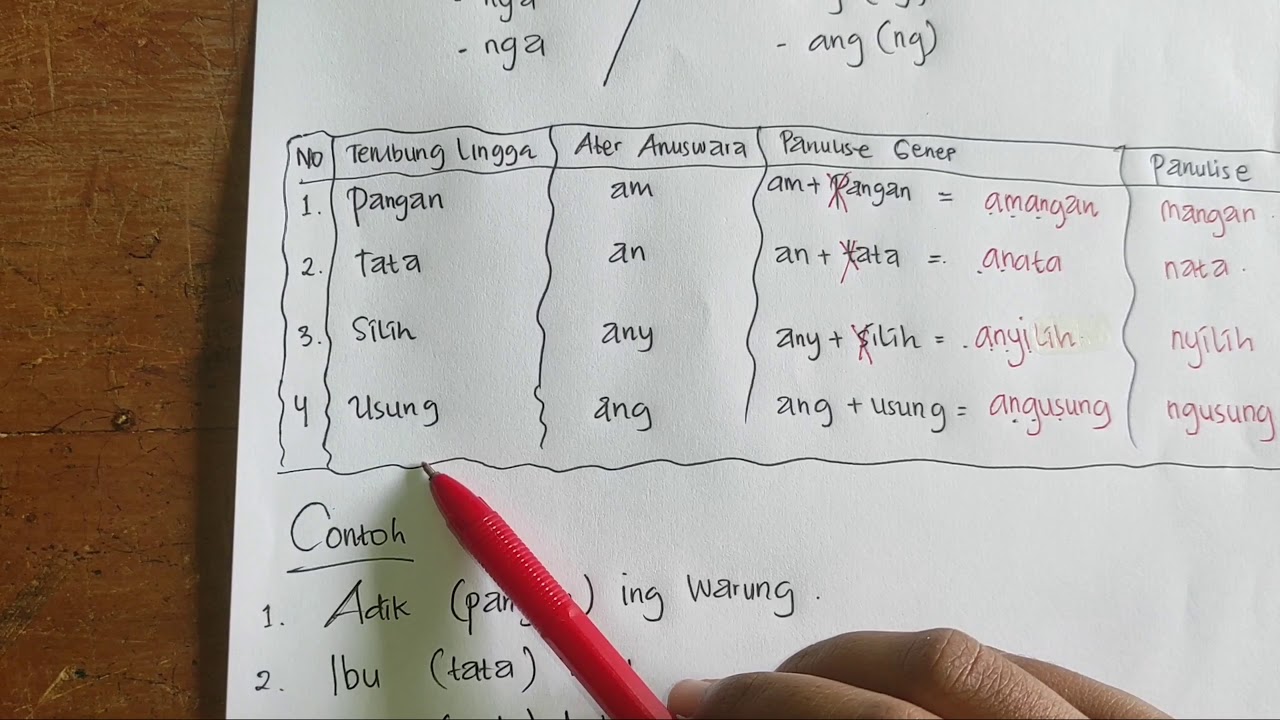 - nga
- nga / - ang (ng)
No Tembung Lingga Ater Anuswara Panulise Genep Panulise
1. Pangan am am + Pangan = amangan mangan
2. Tata an an + tata = anata nata
3. Silih any any + silih = anyilih nyilih
4 Usung ang ang + usung = angusung ngusung
Contoh
1. Adik (pan ) ing Warung.
2. Ibu (tata)